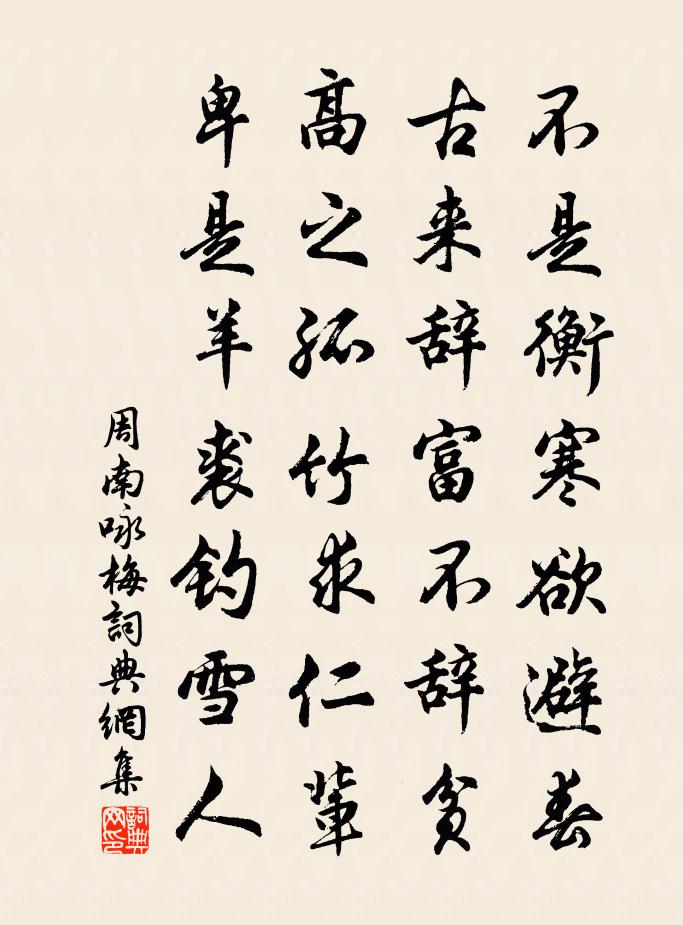 不是衡寒欲避春
古来辞富不辞贫
高之孤竹求仁辈
卑是羊裘钓雪人
周南咏梅詞典網集
詞典网印